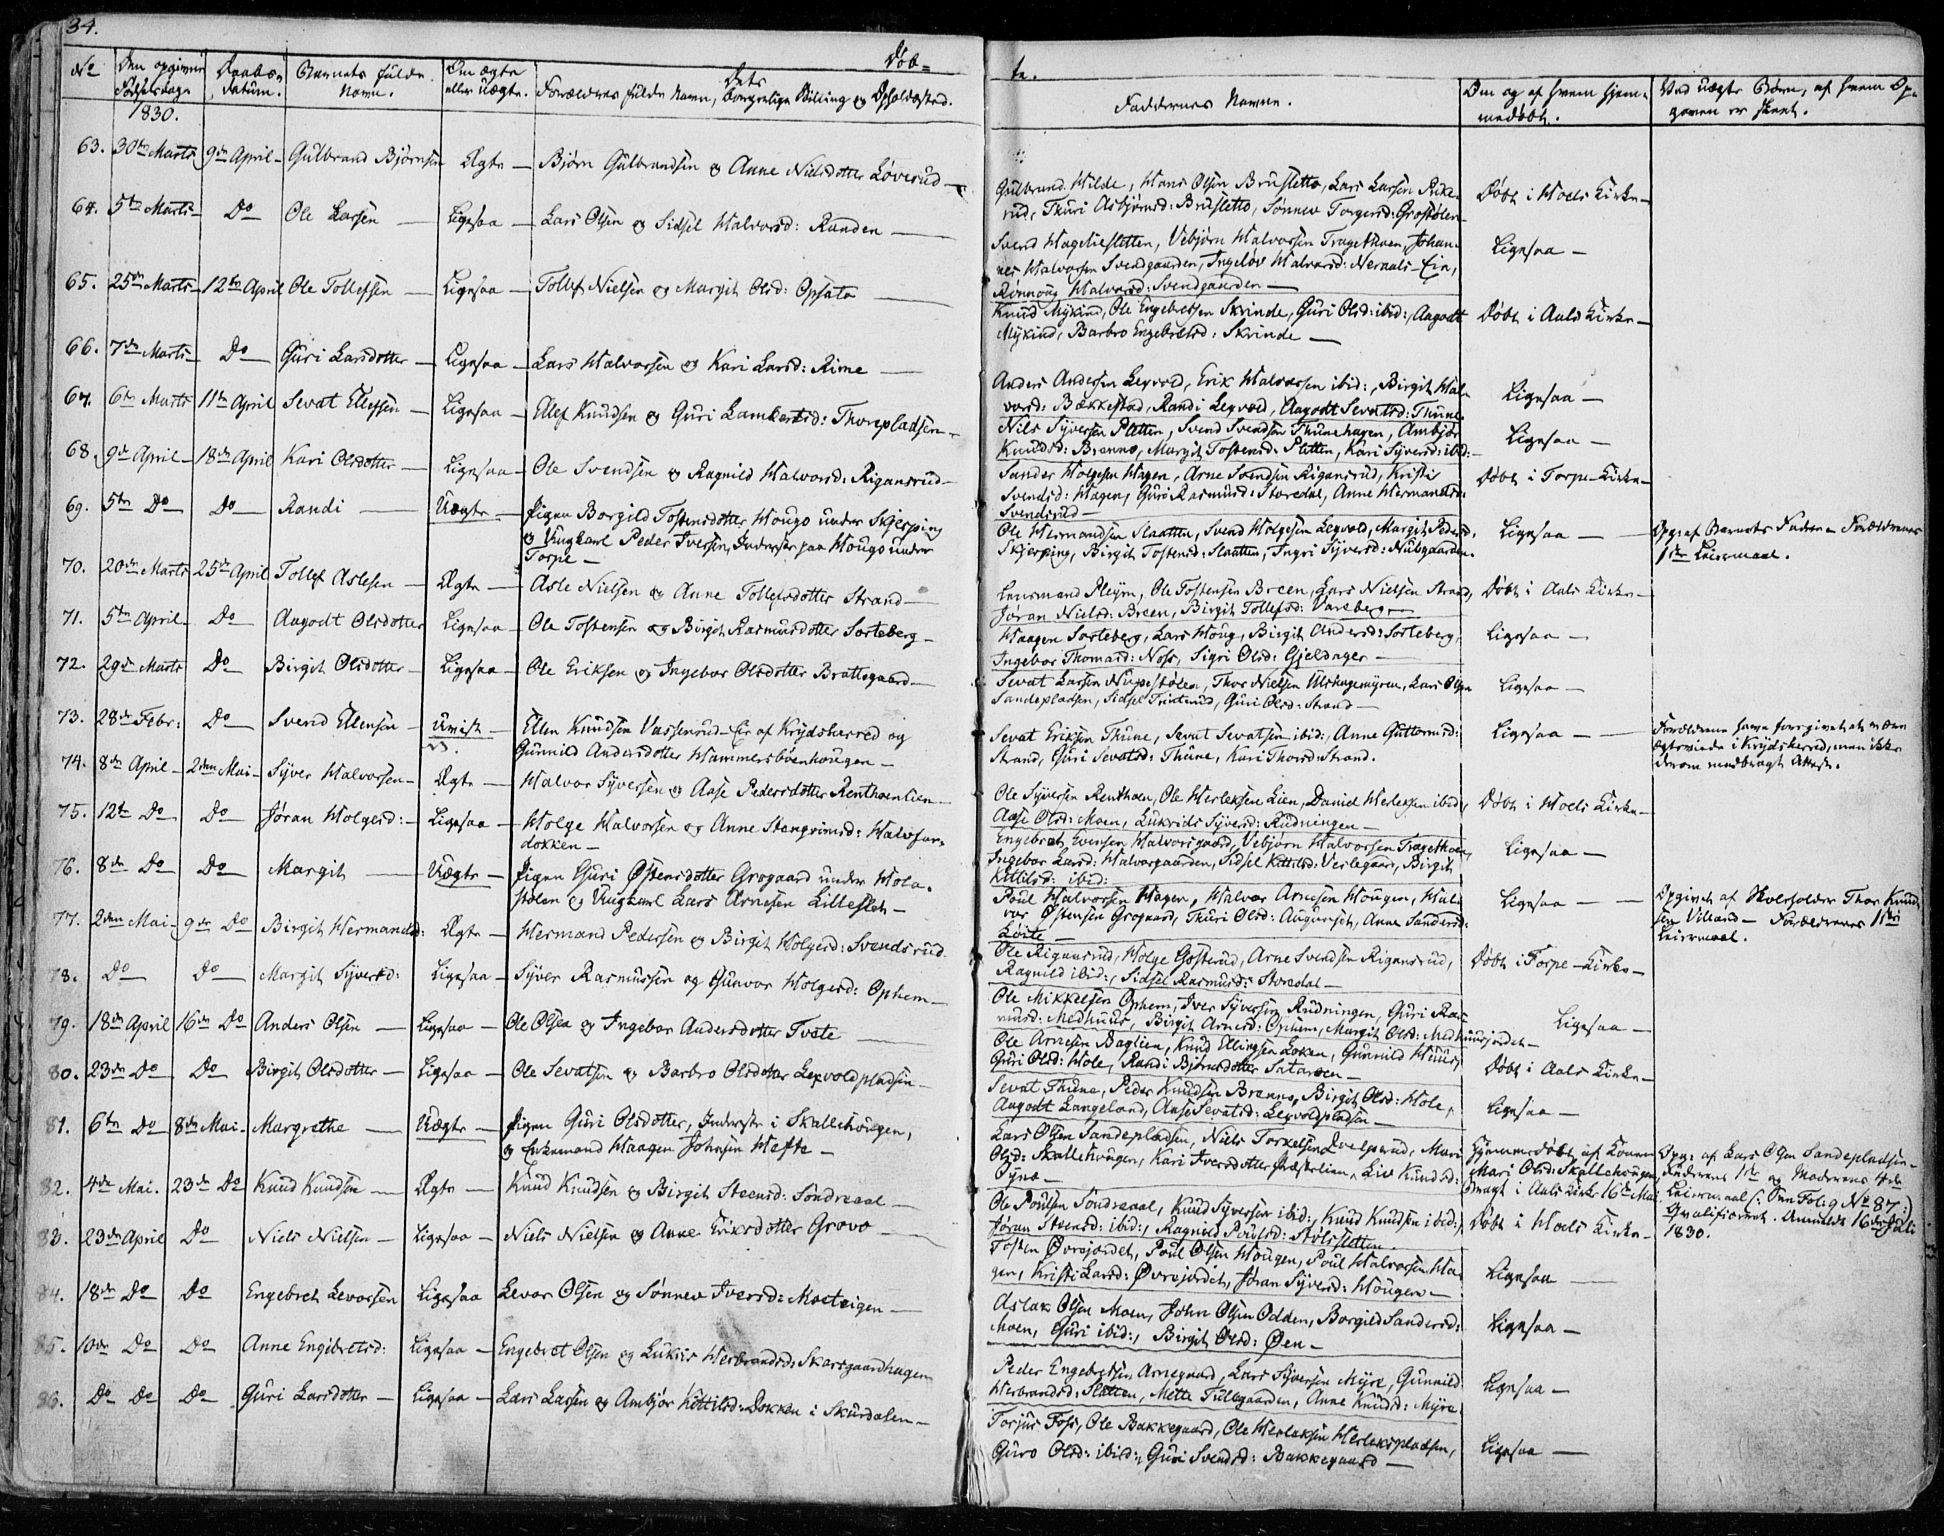 34.
Døb=
te.
No
Den opgivne Fødselsdag.
Daabens Datum.
Barnets fulde Navn.
Om ægte eller uægte.
Forældrenes fulde Navn, Dets borgerlige Stilling og Opholdssted.
Faddernes Navne.
Om og af hvem hjemmedøbt.
Ved uægte Børn, af hvem Opgaven er skeet.
1830.
63. 30te Marts 9de April Gulbrand Bjørnsen Ægte Bjørn Gulbrandsen og Anne Nielsdotter Løverud
Gulbrand Hilde, Hans Olsen Brusletto, Lars Larsen
Thuri Asbjørnsd: Brusletto, Sønnev Torgersd: Grostølen
Døbt i Hoels Kirke
64. 5te Marts Do Ole Larsen Ligesaa Lars Olsen og Sidsel Halvorsd: Randen
Svend Hagelieslette​n, Vebjørn Halvorsen Tragethoen, Johan-
nes Halvorsen Svendgaarden, Ingeløv Halvorsd: Neraals-Eie,
Rønnoug Halvorsd: Svendgaarden
Ligesaa
65. 25de Marts 12te April Ole Tollefsen Ligesaa Tollef Nielsen og Margit Olsd: Opsata
Knud Mykind, Ole Engebretsen Skrinde, Guri Olsd: ibid:, Aagodt
Mykind, Barbro Engebretsd: Skrinde
Døbt i Aals Kirke
66. 7de Marts Do Guri Larsdotter Ligesaa Lars Halvorsen og Kari Larsd: Rime
Anders Andersen Leqvold, Erik Halvorsen ibid:, Birgit Hal-
vorsd: Bakkestad, Randi Leqvold, Aagodt Sevatsd: Thune
Ligesaa
67. 6te Marts 11te April Sevat Ellefsen Ligesaa Ellef Knudsen og Guri Lambertsd: Thonepladsen
Nils Syversen Platten, Svend Svendsen Thunehagen, Ambjør
Knudsd: Brenno, Margit Tostensd: Platten, Kari Syversd: ibid:
Ligesaa
68. 9de April 18de April Kari Olsdotter Ligesaa Ole Svendsen og Ragnild Halvorsd: Rigansrud
Sander Holgesen Hagen, Arne Svendsen Rigansrud, Kristi
Svendsd: Hagen, Guri Rasmusd: Storedal, Anne Hermansd:
Svendsrud
Døbt i Torpe Kirke
69. 5te Do Do Randi Uægte Pigen Borgild Tostensdotter Hougo under Skjerping
og Ungkarl Peder Iversen, Inderste paa Hougo under
Torpe
Ole Hermandsen Slaatten, Svend Holgesen Leqvold, Margit Pedersd:
Skjerping, Birgit Tostensd: Slaatten, Ingri Syversd: Nubgaarden
Ligesaa
Opg: af Barnets Fader Forældrenes
1ste Leiermaal.
70. 20de Marts 25de April Tollef Aslesen Ægte Asle Nielsen og Anne Tollefsdotter Strand
Lensmand Pleym, Ole Tostensen Breen, Lars Nielsen Strand,
Jøran Nielsd: Breen, Birgit Tollefsd: Vareberg
Døbt i Aals Kirke
71. 5te April Do Aagodt Olsdotter Ligesaa Ole Tostensen og Birgit Rasmusdotter Sorteberg
Haagen Sorteberg, Lars Houg, Birgit Andersd: Sorteberg,
Ingebor Thomasd: Noss, Sigri Olsd: Gjeldager
Ligesaa
72. 29de Marts Do Birgit Olsdotter Ligesaa Ole Eriksen og Ingebor Olsdotter Brattegaard
Sevat Larsen Nupestølen, Thor Nielsen Ulshagemyren, Lars Olsen
Sandepladsen, Sidsel Trinterud, Guri Olsd: Strand
Ligesaa
73. 28de Febr: Do Svend Ellensen Uvist Ellen Knudsen Vassenrud-Eie af Krydsherred og
Gunnild Andersdotter Hammersbøenhougen
Sevat Eriksen Thune, Sevat Sevatsen ibid:, Anne Guttormsd:
Strand, Guri Sevatsd: Thune, Kari Thorsd: Strand.
Ligesaa
Forældrene have foregivet at være
ægteviede i Krydsherred, men ikke
derom medbragt Attest.
74. 8de April 2den Mai Syver Halvorsen Ægte Halvor Syversen og Aase Pedersdotter Renthoenlien
Ole Syversen Renthoen, Ole Herleksen Lien, Daniel Herleksen ibid:,
Aase Olsd: Moen, Lukrids Syversd: Rudningen
Døbt i Hoels Kirke
75. 12te Do Do Jøran Holgesd: Ligesaa Holge Halvorsen og Anne Stengrimsd: Halvfar-
dokken
Engebret Evensen Halvorsgaard, Vebjørn Halvorsen Tragethoen,
Ingebor Larsd: Halvorgaarden, Sidsel Kittilsd: Verlegaard, Birgit
Kittilsd: ibid:
Ligesaa
76. 8de Do Do Margit Uægte Pigen Guri Østensdotter Grogaard under Hola-
stølen og Ungkarl Lars Arnesen Lilleslet
Poul Halvorsen Hagen, Halvor Arnesen Hougen, Hal-
vor Østensen Grogaard, Thuri Olsd: Augunset, Anne Sandersd:
Løite
Ligesaa
Opgivet af Skoleholder Thor Knud-
sen Villand Forældrenes 1ste
Leiermaal.
77. 2den Mai 9de Do Birgit Hermandsd: Ægte Hermand Pedersen og Birgit Holgesd: Svendsrud
Ole Rigansrud, Holge Golterud, Arne Svendsen Rigansrud,
Ragnild ibid:, Sidsel Rasmusd: Storedal
Døbt i Torpe Kirke
78. Do Do Margit Syversd: Ligesaa Syver Rasmussen og Gunvor Holgesd: Ophem
Ole Mikkelsen Ophem, Iver Syversen Rudningen, Guri Ras-
musd: Medhuus, Birgit Arnesd: Ophem, Margit Olsd: Medhuusjordet
Ligesaa
79. 18de April 16de Do Anders Olsen Ligesaa Ole Olsen og Ingebor Andersdotter Tvete
Ole Arnesen Baglien, Knud Ellingsen Loken, Gunnild Huus,
Guri Olsd: Hole, Randi Bjørnsdotter Sataroen
Døbt i Aals Kirke
80. 23de Do Do Birgit Olsdotter Ligesaa Ole Sevatsen og Barbro Olsdotter Leqvoldpladsen
Sevat Thune, Peder Knudsen Brenno, Birgit Olsd: Hole,
Aagodt Langeland, Aase Sevatsd: Leqvoldpladsen
Ligesaa
81. 6te Do 8de Mai Margrethe Uægte Pigen Guri Olsdotter, Inderste i Skallehougen,
og Enkemand Haagen Johnsen Hefte
Lars Olsen Sandepladsen, Niels Torkelsen, Mari
Olsd: Skallehougen, Kari Iversdotter Præstelien, Liv Knudsd:
Hjemmedøbt af Konen
Mari Olsd: Skallehougen,
bragt i Aals Kirke 16de Mai
Opg: af Lars Olsen Sandepladsen
Faderens 1ste og Moderens 4de
Leiermaal (: See Folig No 87:)
Qvalificeret. Anmeldt 16de Juli
1830.
82. 4de Mai. 23de Do Knud Knudsen Ægte Knud Knudsen og Birgit Steensd: Søndreaal
Ole Poulsen Søndreaal, Knud Syversen ibid:, Knud Knudsen ibid:,
Jøran Steensd: ibid:, Ragnild Poulsd: Stolsletten
Døbt i Hoels Kirke
83. 23de April Do Niels Nielsen Ligesaa Niels Nielsen og Anne Eriksdotter Grovo
Tosten Øvrejordet, Poul Olsen Hougen, Poul Halvorsen Ha-
gen, Kristi Larsd: Øvrejordet, Jøran Syversd: Hougen
Ligesaa
84. 18de Do Do Engebret Levorsen Ligesaa Levor Olsen og Sønnev Iversd: Moeteigen
Aslak Olsen Moen, John Olsen Odden, Borgild Sandersd:
Moen, Guri ibid:, Birgit Olsd: Øen
Ligesaa
85. 10de Do Do Anne Engebretsd: Ligesaa Engebret Olsen og Lukris Herbrandsd: Skarsgaardhagen
Peder Engebretsen Arnegaard, Lars Syversen Myre, Gunnild
Herbrandsd: Sletten, Mette Tullegaarden, Anne Knudsd: Myre
Ligesaa
86. Do Do Do Guri Larsdotter Ligesaa Lars Larsen og Ambjør Kittilsd: Dokken i Skurdalen
Torjus Foss, Ole Bakkegaard, Ole Herleksen Herlekspladsen,
Guro Olsd: ibid:, Guri Svendsd: Bakkegaard
Ligesaa